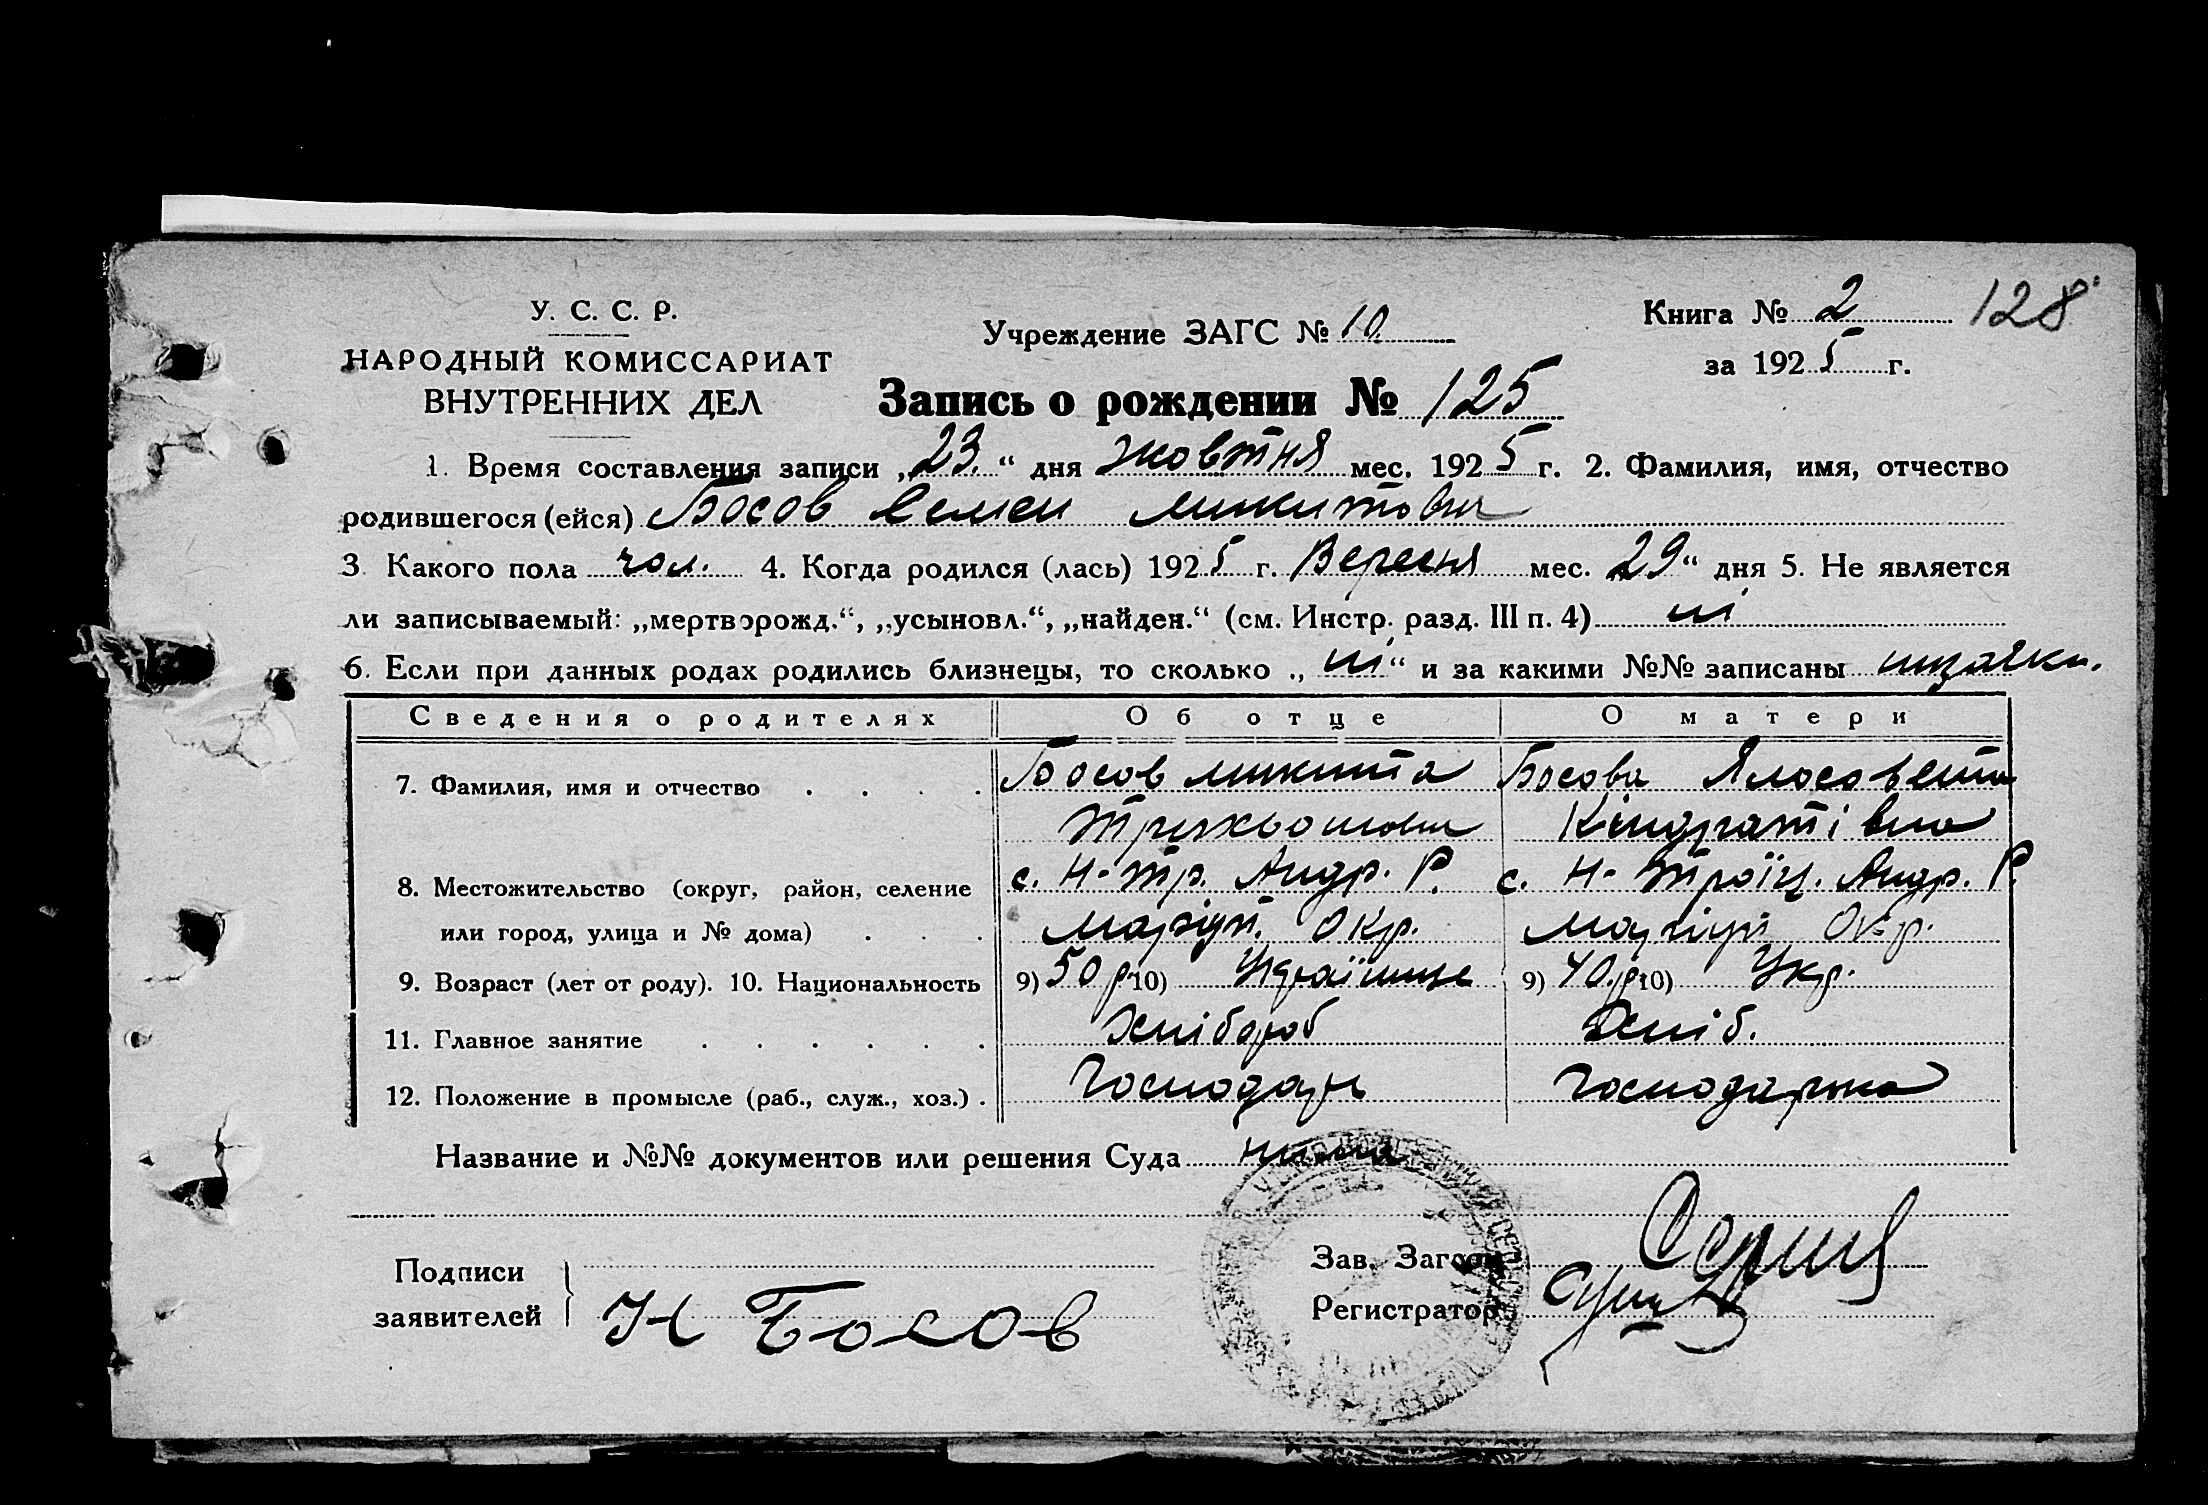 У. С. С. Р.
НАРОДНЫЙ КОМИССАРИАТ
ВНУТРЕННИХ ДЕЛ
Учреждение ЗАГС № 10
Книга № 2 128
за 1925 г.
Запись о рождении № 125
1. Время составления записи „23.“ дня жовтня мес. 1925 г. 2. Фамилия, имя, отчество
родившегося (ейся) Босов Семен Микитович
3. Какого пола чол. 4. Когда родился (лась) 1925 г. Вересня мес. „29“ дня 5. Не является
ли записываемый: „мертворожд.“, „усыновл.“, „найден.“ (см. Инстр. разд. III п. 4) ні
6. Если при данных родах родились близнецы, то сколько „ ні “ и за какими №№ записаны
Сведения о родителях Об отце О матери
7. Фамилия, имя и отчество . . . . Босов Микита Босова
Кіндратівна
8. Местожительство (округ, район, селение с. Н-Тр. Андр. Р. с. Н-Троїц. Андр. Р.
или город, улица и № дома) . . . Маріуп. Окр. Маріуп Окр.
9. Возраст (лет от роду). 10. Национальность 9) 50 р 10) Українце 9) 40 р 10) Укр.
11. Главное занятие . . . . . . Хлібороб Хліб.
12. Положение в промысле (раб., служ., хоз.) . Господарь Господарка
Название и №№ документов или решения Суда нима
Подписи
заявителей Н Босов
Зав. Загсом
Регистратор